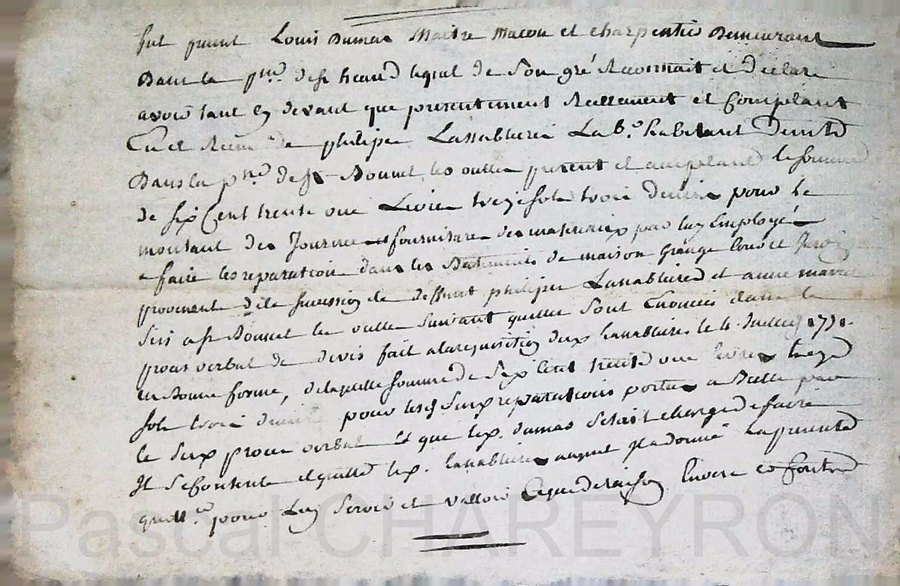 fut present Louis Dumas Maitre Macon et charpentier Demeurant
Dans la de st heand lequel de son gré Reconnait et declare
avoir tant cy devant que presentement Reellement et Comptant
de philipe Lassablieres La habitant
Dans la de st Bonnet les oulles present et acceptand la somme
de six Cent trente une Livre treze sols trois deniers pour le
montant des Journées et fournitures des materiaux par luy Employé
a faire les reparations dans les Batiments de maison Grange Cour et
provenant de la sucession de deffunt philipe Lassablieres et
a st Bonnet les oulles suivant quelles sont Enoncées dans le
proces verbal de devis fait a la requisition dud Lassablieres le 4 Juillet 1771
en Bonne forme, de laquelle somme de six Cent trente une Livres treze
sols trois deniers pour les reparations portées par
le susd proces verbal Et que led. Dumas setait chargé de faire
Il se contente et quitte led. Lassablieres auquel Il a donné La presente
pour Luy servir et valloir Ce que de raison
Pascal CHAREYRON